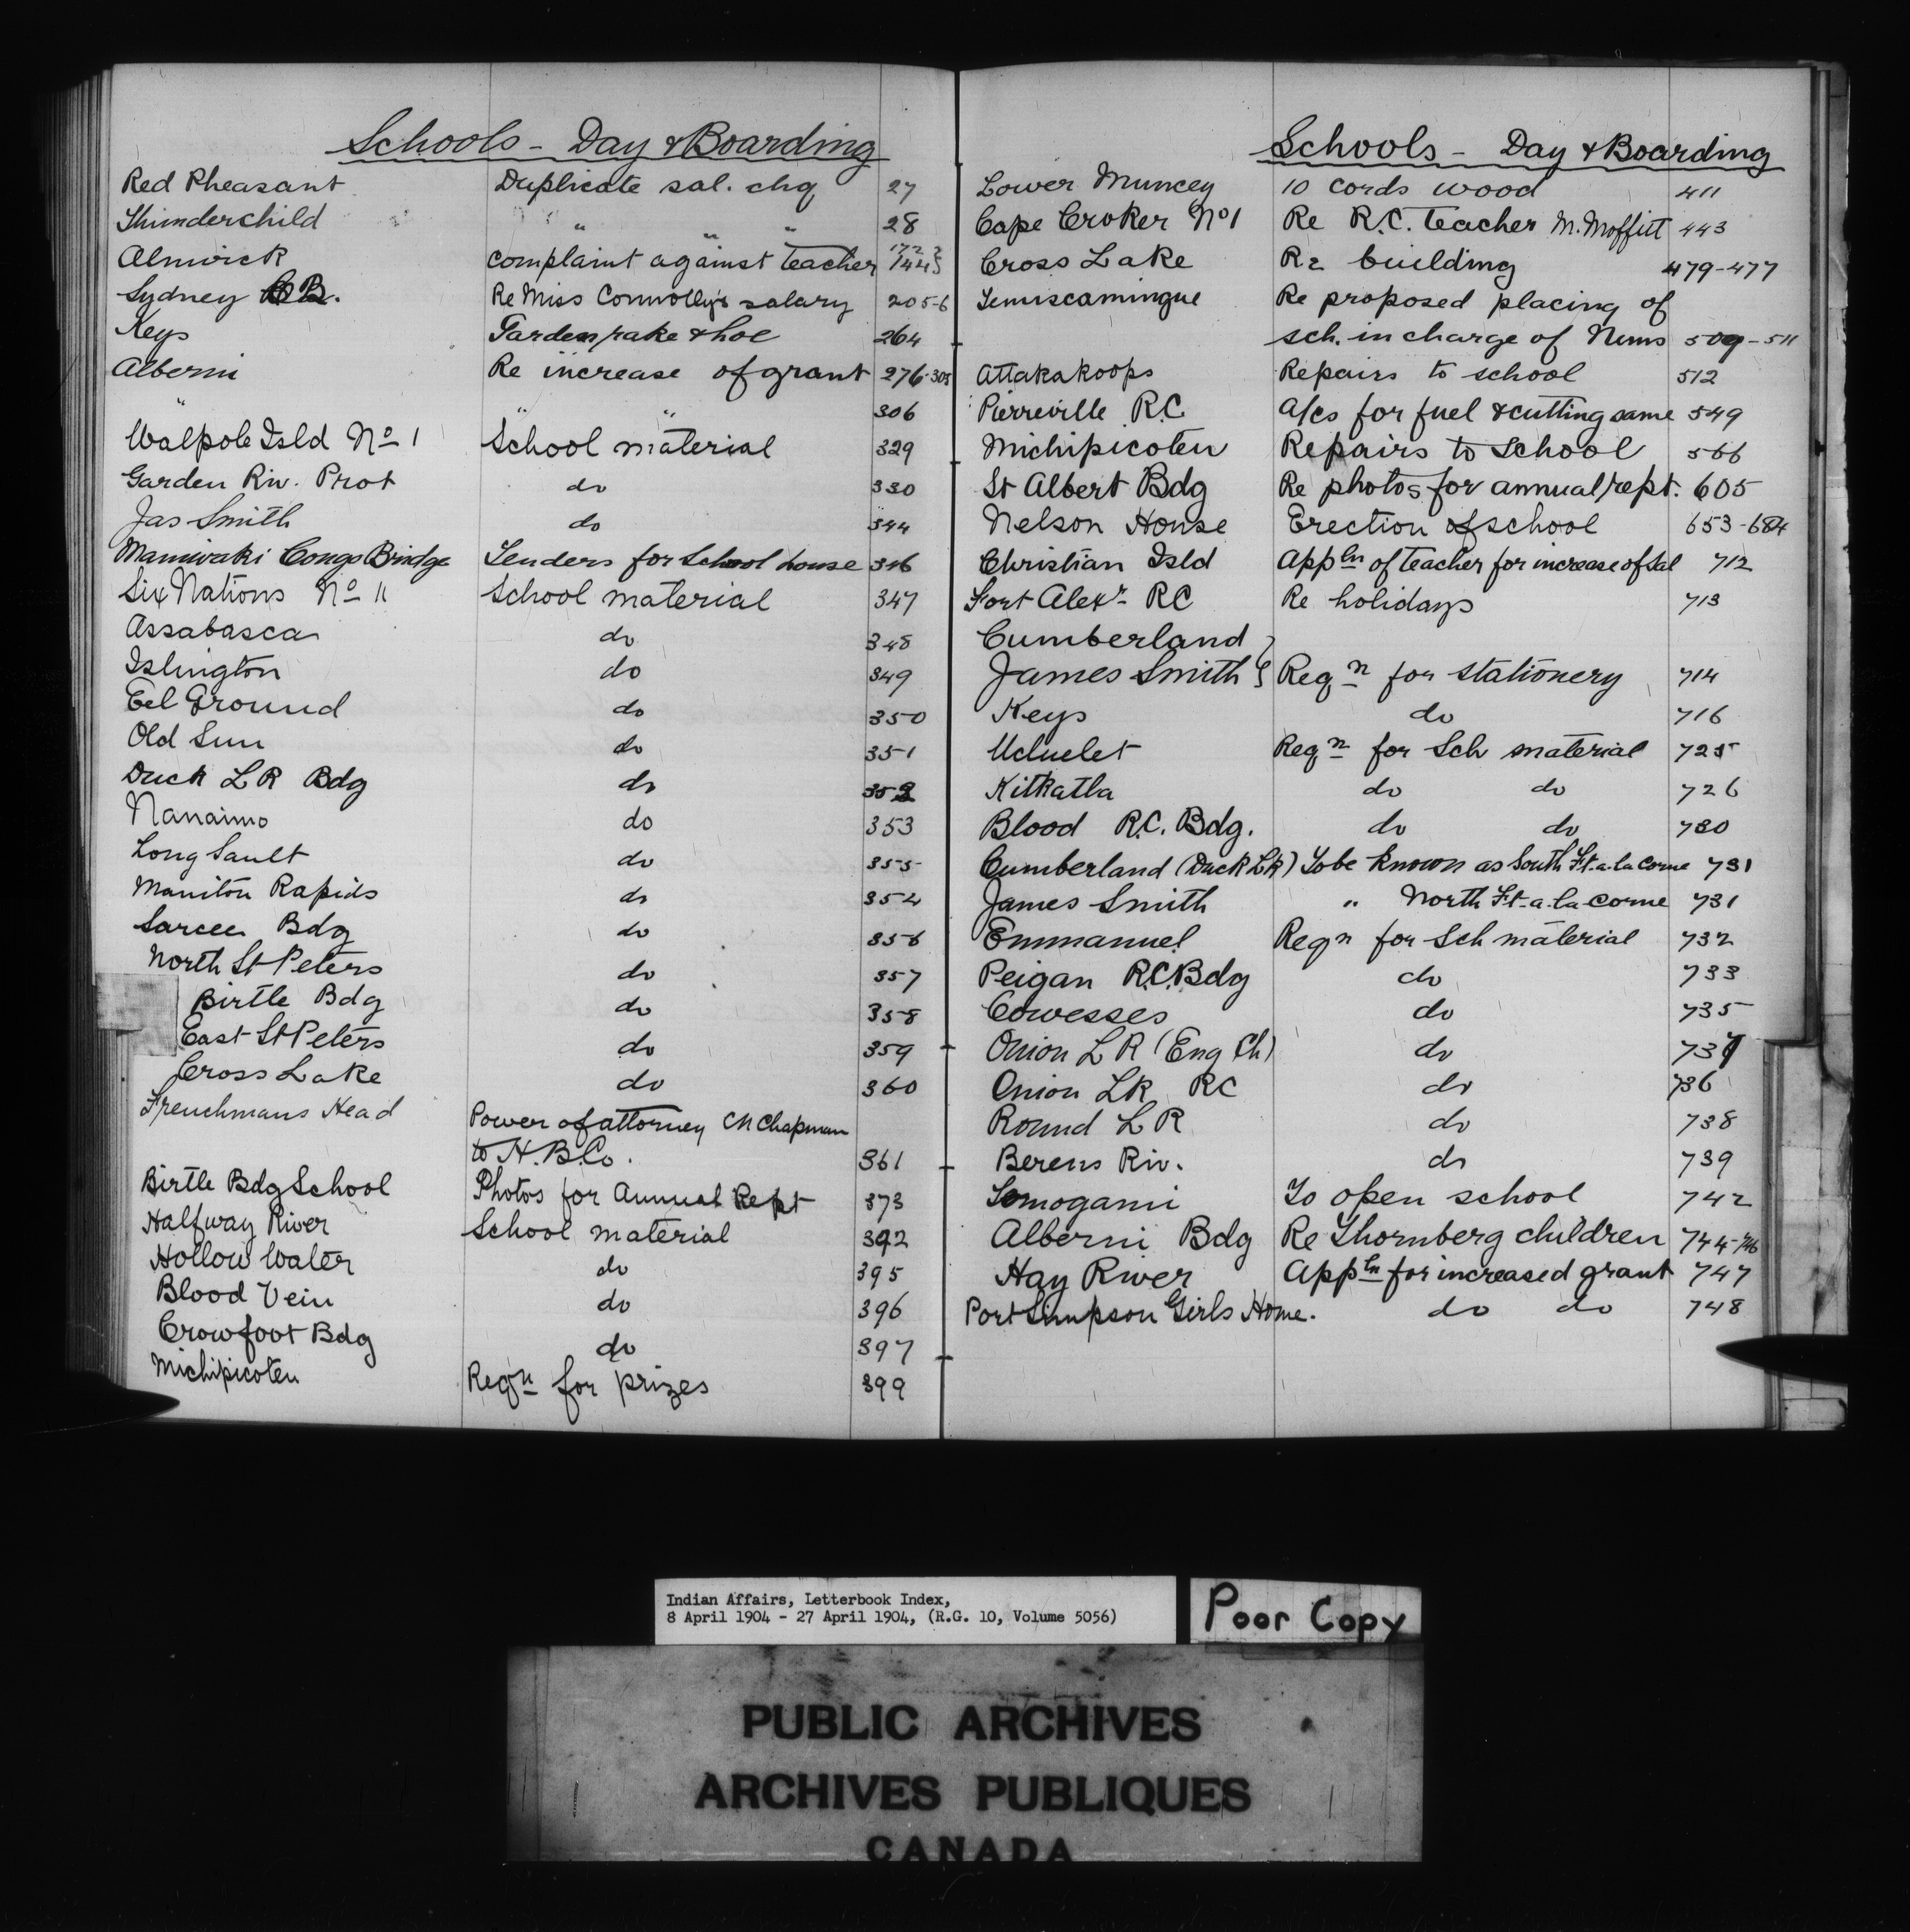 Schools - Day & Boarding
Red Pheasant Duplicate sal. chq 27
Thunderchild " " " 28
Alnwick complaint against teacher 172 144 }
Sydney C.B. Re Miss Connolly's salary 205-6
Keys Garden rake & hoe 264
Alberni Re increase of grant 276-305
" " " 306
Walpole Isld No 1 School material 329
Garden Riv. Prot do 330
Jas Smith do 344
Maniwaki Congo Bridge Tenders for School house 346
Six Nations No 11 School material 347
Assabasca do 348
Islington do 349
Eel Ground do 350
Old Sun do 351
Duck L R Bdg do 352
Nanaimo do 353
Long Sault do 355
Manitou Rapids do 354
Sarcee Bdg do 356
North St Peters do 357
Birtle Bdg do 358
East St Peters do 359
Cross Lake do 360
Frenchmans Head Power of attorney CH Chapman
to H.B.Co. 361
Birtle Bdg School Photos for Annual Rept 373
Halfway River School material 392
Hollow Water do 395
Blood Vein do 396
Crowfoot Bdg do 397
Michipicoten Reqn for prizes 399
Schools - Day & Boarding
Lower Muncey 10 cords wood 411
Cape Croker No 1 Re R.C. teacher M. Moffitt 443
Cross Lake Re building 479-477
Temiscamingue Re proposed placing of
sch. in charge of Nuns 509-511
Attakakoops Repairs to school 512
Pierreville R.C. A/cs for fuel & cutting same 549
Michipicoten Repairs to School 566
St Albert Bdg Re photos for annual rept. 605
Nelson House Erection of school 653-684
Christian Isld Appln of teacher for increase of Sal 712
Fort Alexr RC Re holidays 713
Cumberland }
James Smith } Reqn for stationery 714
Keys do 716
Ucluelet Reqn for Sch material 725
Kitkatla do do 726
Blood R.C. Bdg. do do 730
Cumberland (Duck Lk) To be known as South Ft-a-la-Corne 731
James Smith " North Ft-a-la-corne 731
Emmanuel Reqn for Sch material 732
Peigan R.C. Bdg do 733
Cowesses do 735
Onion L R (Eng Ch) do 737
Onion LK RC do 736
Round L R do 738
Berens Riv. do 739
Temogami To open school 742
Alberni Bdg Re Thornberg children 744-746
Hay River Appln for increased grant 747
Port Simpson Girls Home. do do 748
Indian Affairs, Letterbook Index,
8 April 1904 - 27 April 1904, (R.G. 10, Volume 5056)
Poor Copy
PUBLIC ARCHIVES
ARCHIVES PUBLIQUES
CANADA